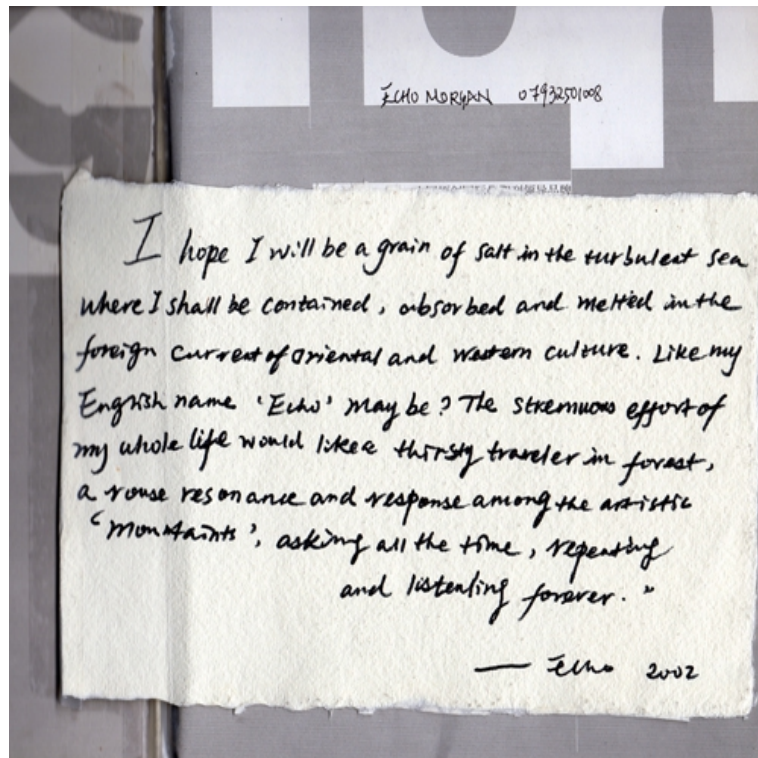 ECHO MORGAN 07932501008
I hope I will be a grain of salt in the turbuleat sea
where I shall be contained, absorbed and melted in the
foreign current of oriental and western culture. Like my
English name 'Echo' may be? The strenuous effort of
my whole life would like a thirsty traveler in forest,
a rouse resonance and response among the artistic
'Mountaints', asking all the time, repeating
and listenling forever."
— Echo 2002